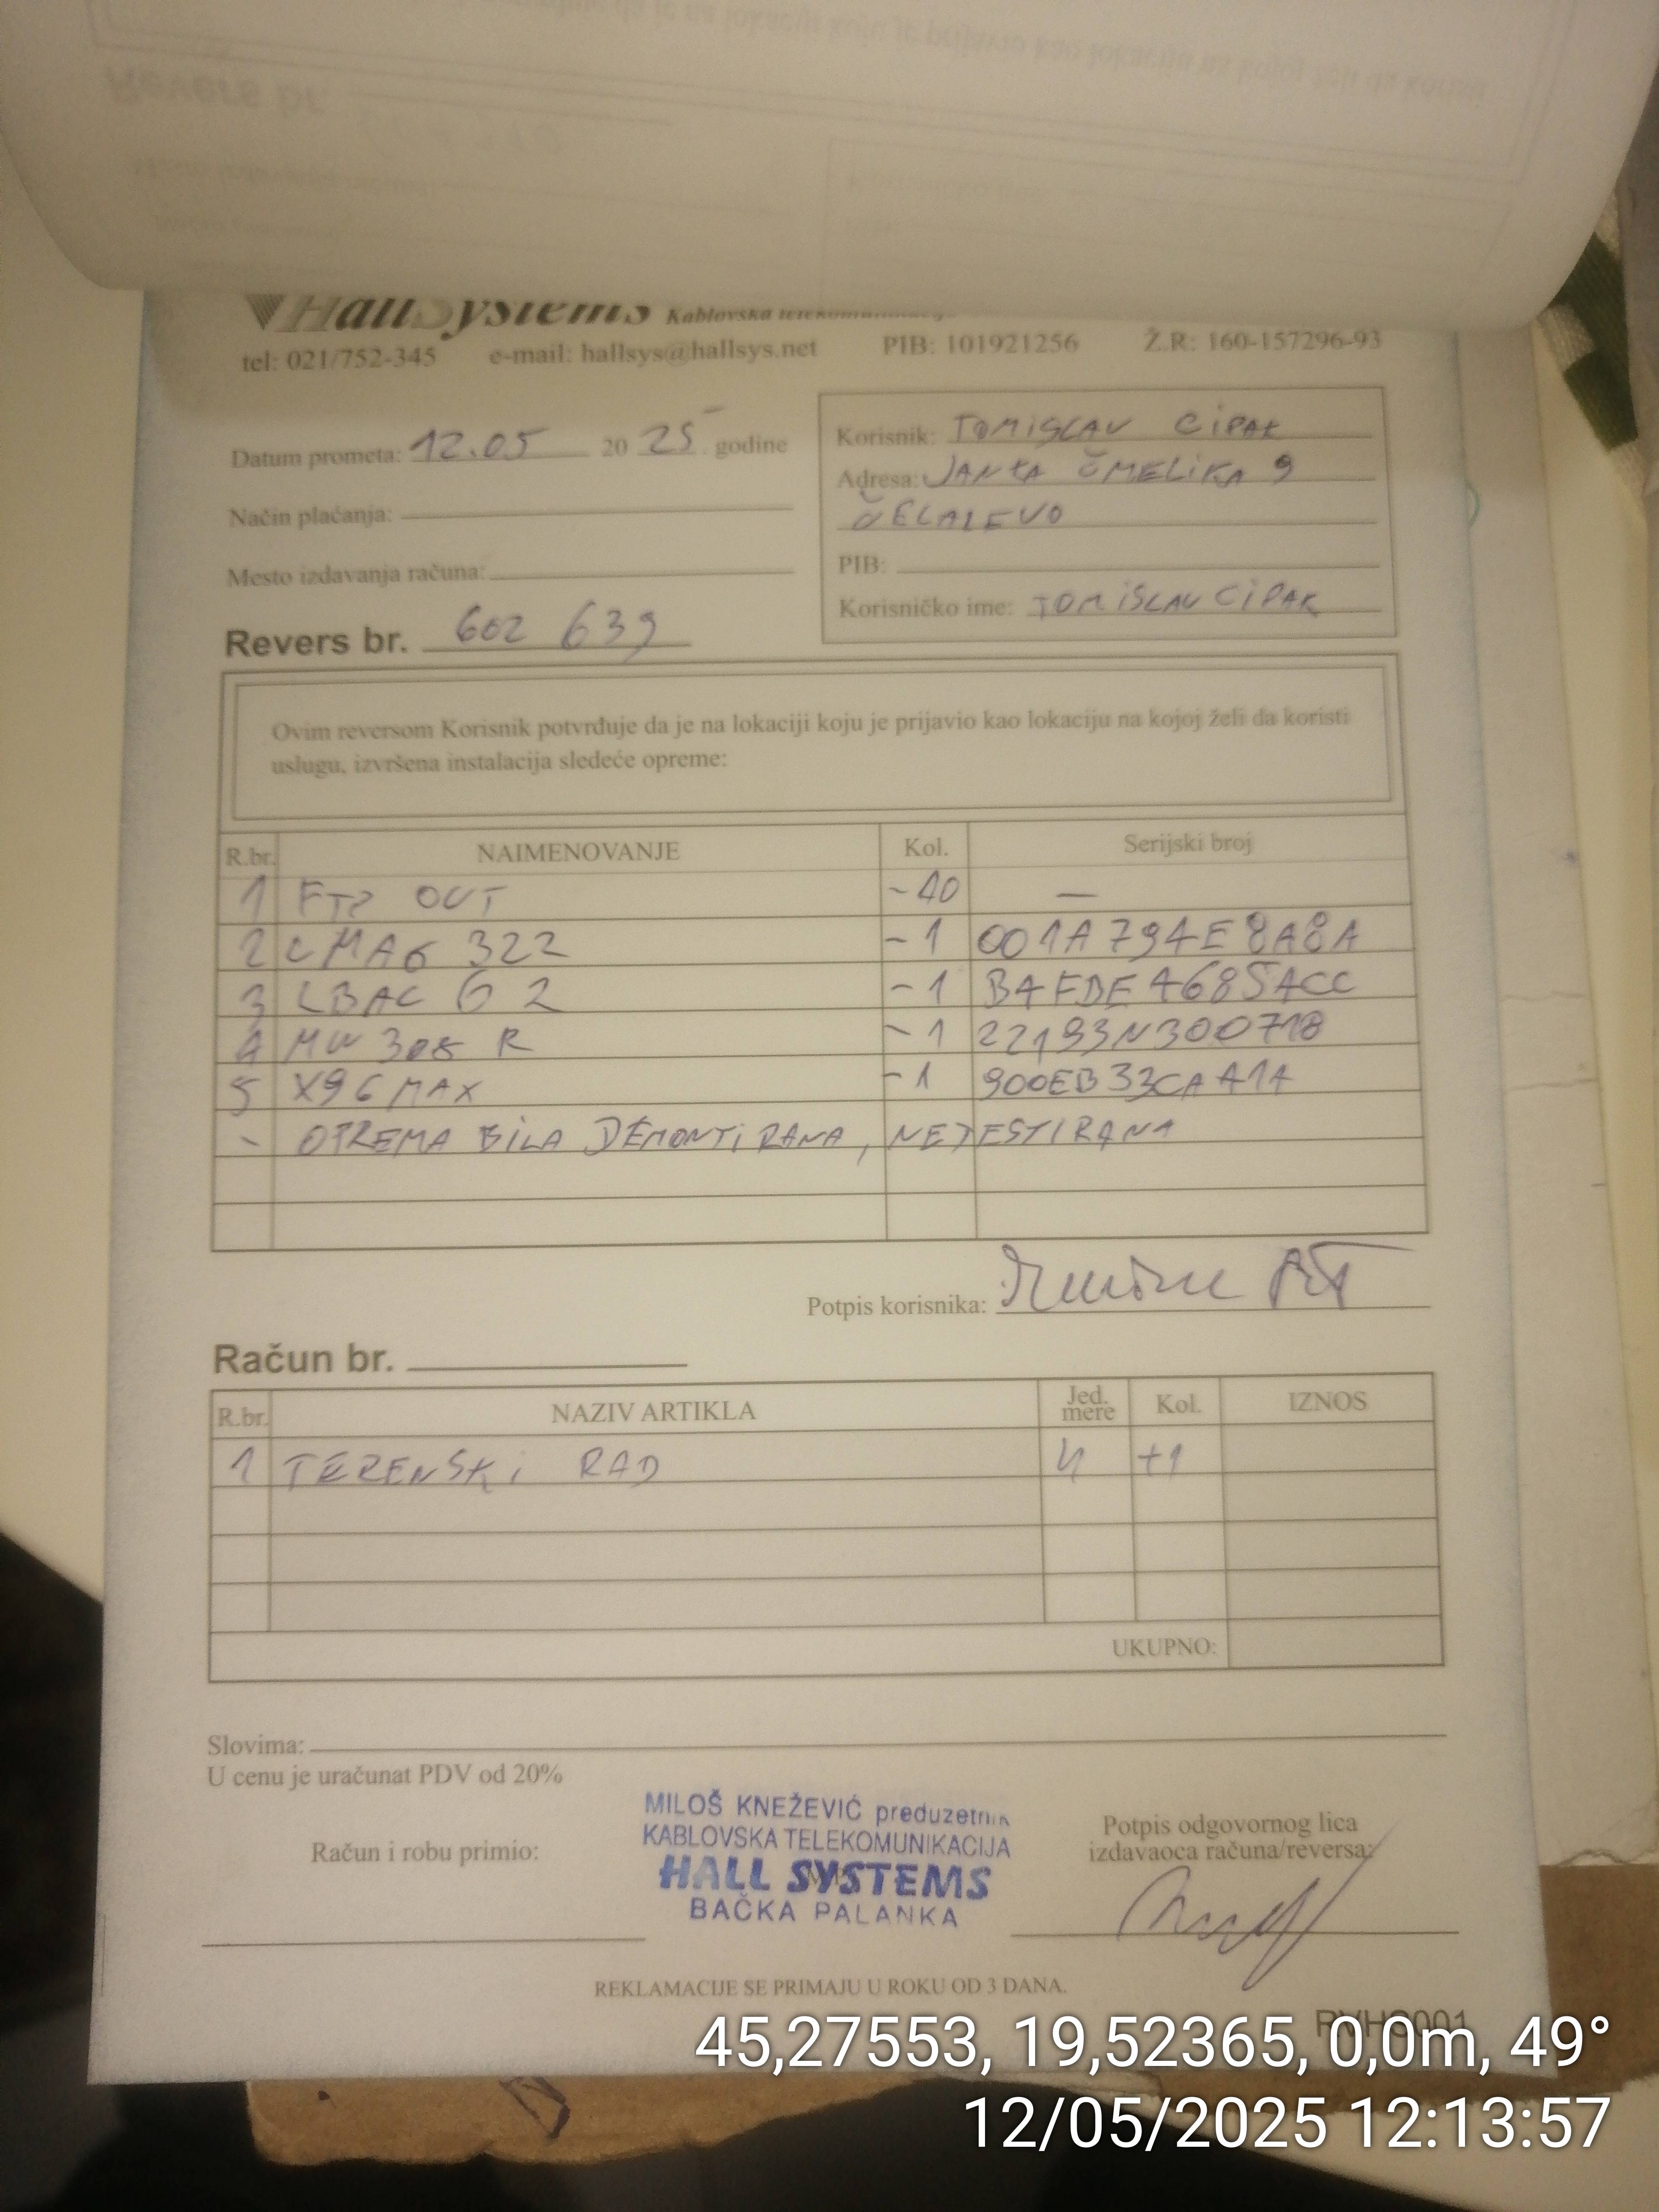 HallSystems Kablovska telekomunikacija
tel: 021/752-345 e-mail: hallsys@hallsys.net PIB: 101921256 Ž.R: 160-157296-93
Datum prometa: 12.05 20 25. godine
Način plaćanja:
Mesto izdavanja računa:
Revers br. 602 639
Korisnik: TOMISLAV CIPAK
Adresa: JANKA ČMELIKA 9
ČELAREVO
PIB:
Korisničko ime: TOMISLAVCIPAK
Ovim reversom Korisnik potvrđuje da je na lokaciji koju je prijavio kao lokaciju na kojoj želi da koristi
uslugu, izvršena instalacija sledeće opreme:
R.br. NAIMENOVANJE Kol. Serijski broj
1 FTP OUT -40 —
2 LMAG 322 -1 001A794E8A8A
3 LBAC G2 -1 B4FBE4685ACC
4 MW 305 R -1 22193N300718
5 X96 MAX -1 900EB33CAA1A
- OPREMA BILA DEMONTIRANA, NETESTIRANA
Potpis korisnika:
Račun br.
R.br. NAZIV ARTIKLA Jed. mere Kol. IZNOS
1 TERENSKI RAD h +1
UKUPNO:
Slovima:
U cenu je uračunat PDV od 20%
Račun i robu primio:
MILOŠ KNEŽEVIĆ preduzetnik
KABLOVSKA TELEKOMUNIKACIJA
HALL SYSTEMS
BAČKA PALANKA
Potpis odgovornog lica
izdavaoca računa/reversa:
REKLAMACIJE SE PRIMAJU U ROKU OD 3 DANA.
RVHS001
45,27553, 19,52365, 0,0m, 49°
12/05/2025 12:13:57